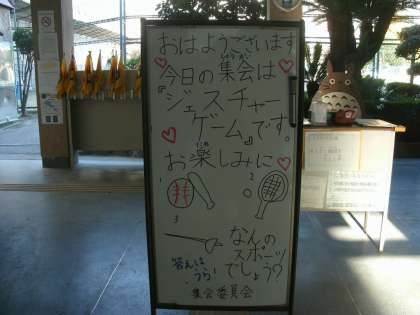 おはようございます
今日の集会は
『ジェスチャー
ゲーム』です。
お楽しみに
なんの
スポーツ
でしょう?
答えは
うら
集会委員会